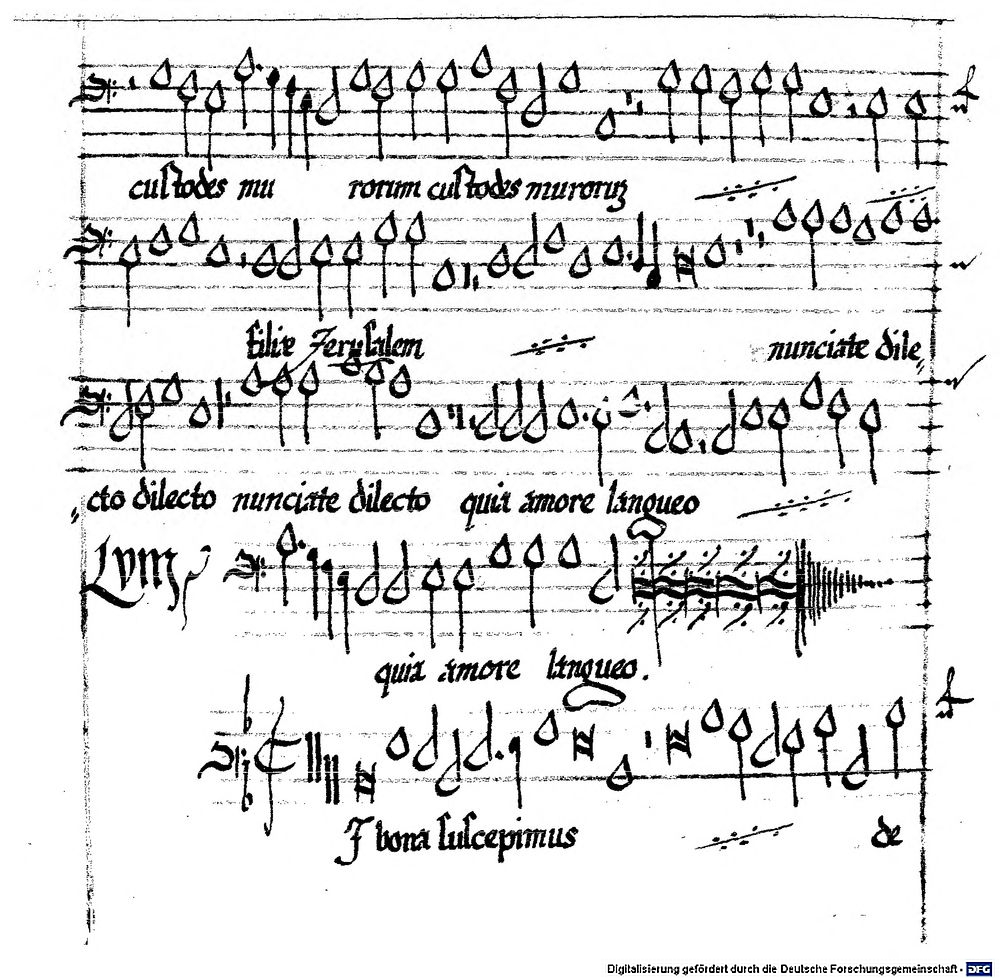 custodes mu rorum custodes muroruz
filiæ Jerusalem nunciate dile
cto dilecto nunciate dilecto quia amore langueo
quia amore langueo.
I bona suscepimus de
Digitalisierung gefördert durch die Deutsche Forschungsgemeinschaft - DFG